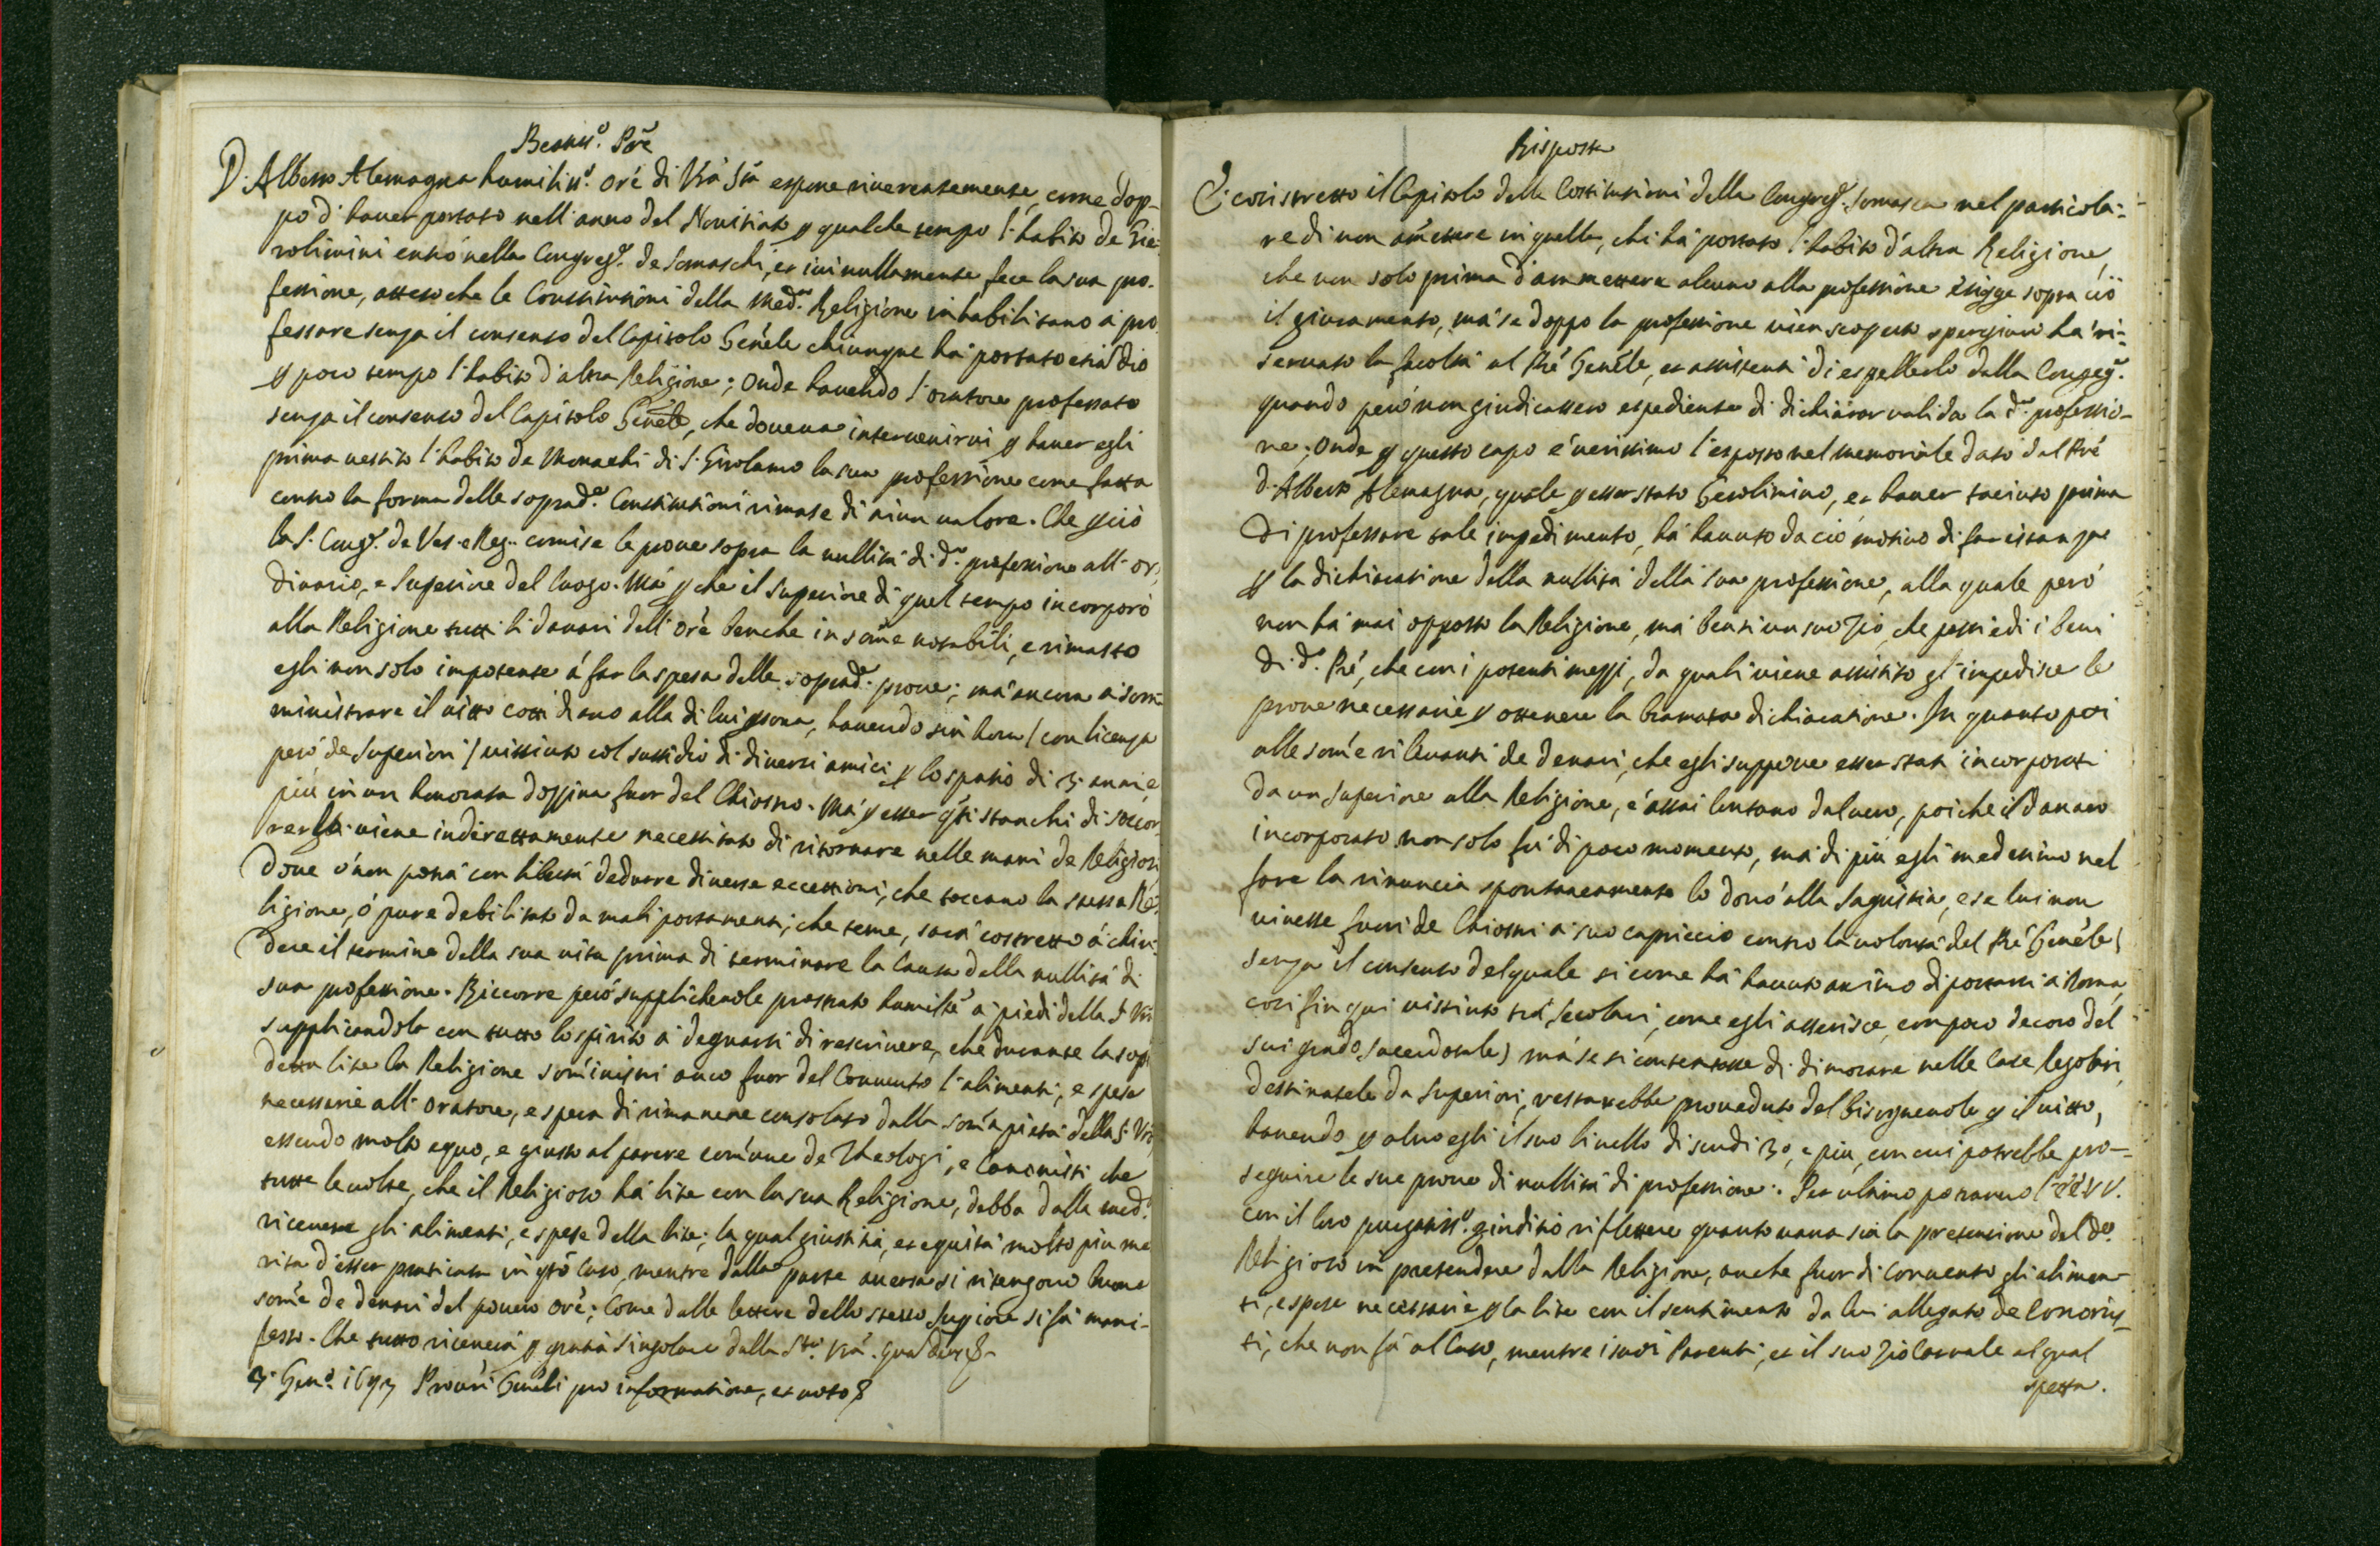 Beatiss.º Prẽ
D. Alberto Alemagna humiliss.º Orẽ di Vrã Stà espone riverentemente, come dop-
pò d'haver portato nell'anno del Novitiato p qualche tempo l'habito de Gie-
rolimini entrò nella Congreg.e de Somaschi, et ivi nullamente fece la sua pro-
fessione, atteso che le Constitutioni della med.a Religione inhabilitano à pro
fessare senza il consenso del Capitolo Genẽle chiunque hà portato etiã dio
p poco tempo l'habito d'altra Religione; Onde havendo l'oratore professato
senza il consenso del Capitolo Genẽle, che doveva intervenirvi p haver egli
prima vestito l'habito de Monachi di S. Girolamo la sua professione come fatta
contro la forma delle soprad.e Constitutioni rimase di niun valore. Che p ciò
la S. Cong.e de Ves. e Reg. comise le prove sopra la nullità di d.a professione all'or-
dinario, e Superiore del luogo. Mà p che il Superiore di quel tempo incorporò
alla Religione tutti li danari dell'Orẽ benche in som̃e notabili, e rimasto
egli non solo impotente à far la spesa delle soprad.e prove; mà ancora à som-
ministrare il vitto cotti di suo alla di lui psona, havendo sin hora (con licenza
però de Superiori) vissuto col sussidio di diversi amici p lo spatio di 3 anni, e
più in un honorata dozzina fuor del Chiostro. Mà p esser qsti stanchi di soccor
rerlo viene indirettamente necessitato di ritornare nelle mani de Religiosi
Dove ò non potrà con libertà dedurre diverse eccettioni, che toccano la stessa Re-
ligione, ò pure debilitato da mali portamenti, che teme, sarà costretto à chiu-
dere il termine della sua vita prima di terminare la Causa della nullità di
sua professione. Riccorre però supplichevole prostrato humilm̃e à piedi della S. Vrã
supplicandola con tutto lo spirito à degnarsi di rescrivere, che durante la sopra
detta lite la Religione som̃inistri anco fuor del Convento l'alimenti, e spese
necessarie all'Oratore, e spera di rimanere consolato dalla som̃a pietà della S. Vrã
essendo molto equo, e giusto al parere com̃une de Theologi, e Canonisti che
tutte le volte, che il Religioso hà lite con la sua Religione, debba dalla med.a
ricevere gli alimenti, e spese della lite; la qual giustitia, et equità molto più me
rita d'esser praticata in qsto Caso, mentre dalla parte aversa si ritengono buone
som̃e de denari del povero Orẽ; Come dalle lettere dello stesso Supiore si fà mani-
festo. Che tutto riceverà p gratia singolare dalla S.tà Vrã. Qua Deus &
3. Gen.º 1693 Procuri Genẽli pro informatione, et voto &
Risposta
È così stretto il Capitolo delle Costitutioni della Congreg.e Somasca nel particola-
re di non am̃ettere in quella, chi hà portato l'habito d'altra Religione,
che non solo prima d'ammettere alcuno alla professione esigge sopra ciò
il giuramento, mà se doppo la professione vien scoperto spergiuro hà ri-
servato la facoltà al Prẽ Genẽle, et assistenti di espellerlo dalla Congreg.e
quando però non giudicassero espediente di dichiarar valida la d.a professio-
ne; Onde p questo capo è verissimo l'esposto nel memoriale dato dal Prẽ
D. Alberto Alemagna, quale p esser stato Gerolimino, et haver taciuto prima
Di professare tale impedimento, hà havuto da ciò motivo di far istanza
p la dichiaratione della nullità della sua professione, alla quale però
non hà mai opposto la Religione, mà bensì un suo Zio, che possiedi i beni
di d.º Prẽ, che con i potenti mezzi, da quali viene assistito gl'impedisce le
prove necessarie p ottenere la bramata dichiaratione. In quanto poi
alle som̃e rilevanti de denari, che egli suppone esser stati incorporati
da un Superiore alla Religione, è assai lontano dal vero, poiche il danaro
incorporato non solo fù di poco momento, mà di più egli medesimo nel
fare la rinuncia spontaneamente lo donò alla Sagristia, e se lui non
vivesse fuori de Chiostri à suo capriccio contro la volontà del Prẽ Genẽle (
senza il consenso del quale si come hà havuto animo di portarsi à Roma,
così fin qui vissuto trà Secolari, come egli asserisce, con poco decoro del
sui grado sacerdotale) mà se si contentasse di dimorare nelle Case Regolari
destinatele da Superiori, restarebbe proveduto del bisognevole p il vitto,
havendo p altro egli il suo livello di scudi 30, e più, con cui potrebbe pro-
seguire le sue prove di nullità di professione. Per ultimo potranno l'EE VV.
con il loro purgatiss.º giuditio riflettere quanto vana sia la pretensione del d.º
Religioso in pretendere dalla Religione, anche fuor di Convento gli alimen-
ti, e spese necessarie p la lite con il sentimento da lui allegato de Canonis-
ti, che non fà al Caso, mentre i suoi Parenti, et il suo Zio Carnale al qual
spetta.